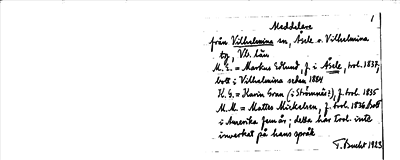 1
Meddelare
från Vilhelmina sn, Åsele o. Vilhelmina
tg, Vb. län
M. E. = Markus Edlund, f. i Åsele, trol. 1837,
bott i Vilhelmina sedan 1884
K. G. = Karin Gran (i Strömnäs?), f. trol. 1835
M. M. = Mattes Mickelsen, f. trol. 1836, bott
i Amerika fem år; detta har trol. inte
inverkat på hans språk
T. Bucht 1923